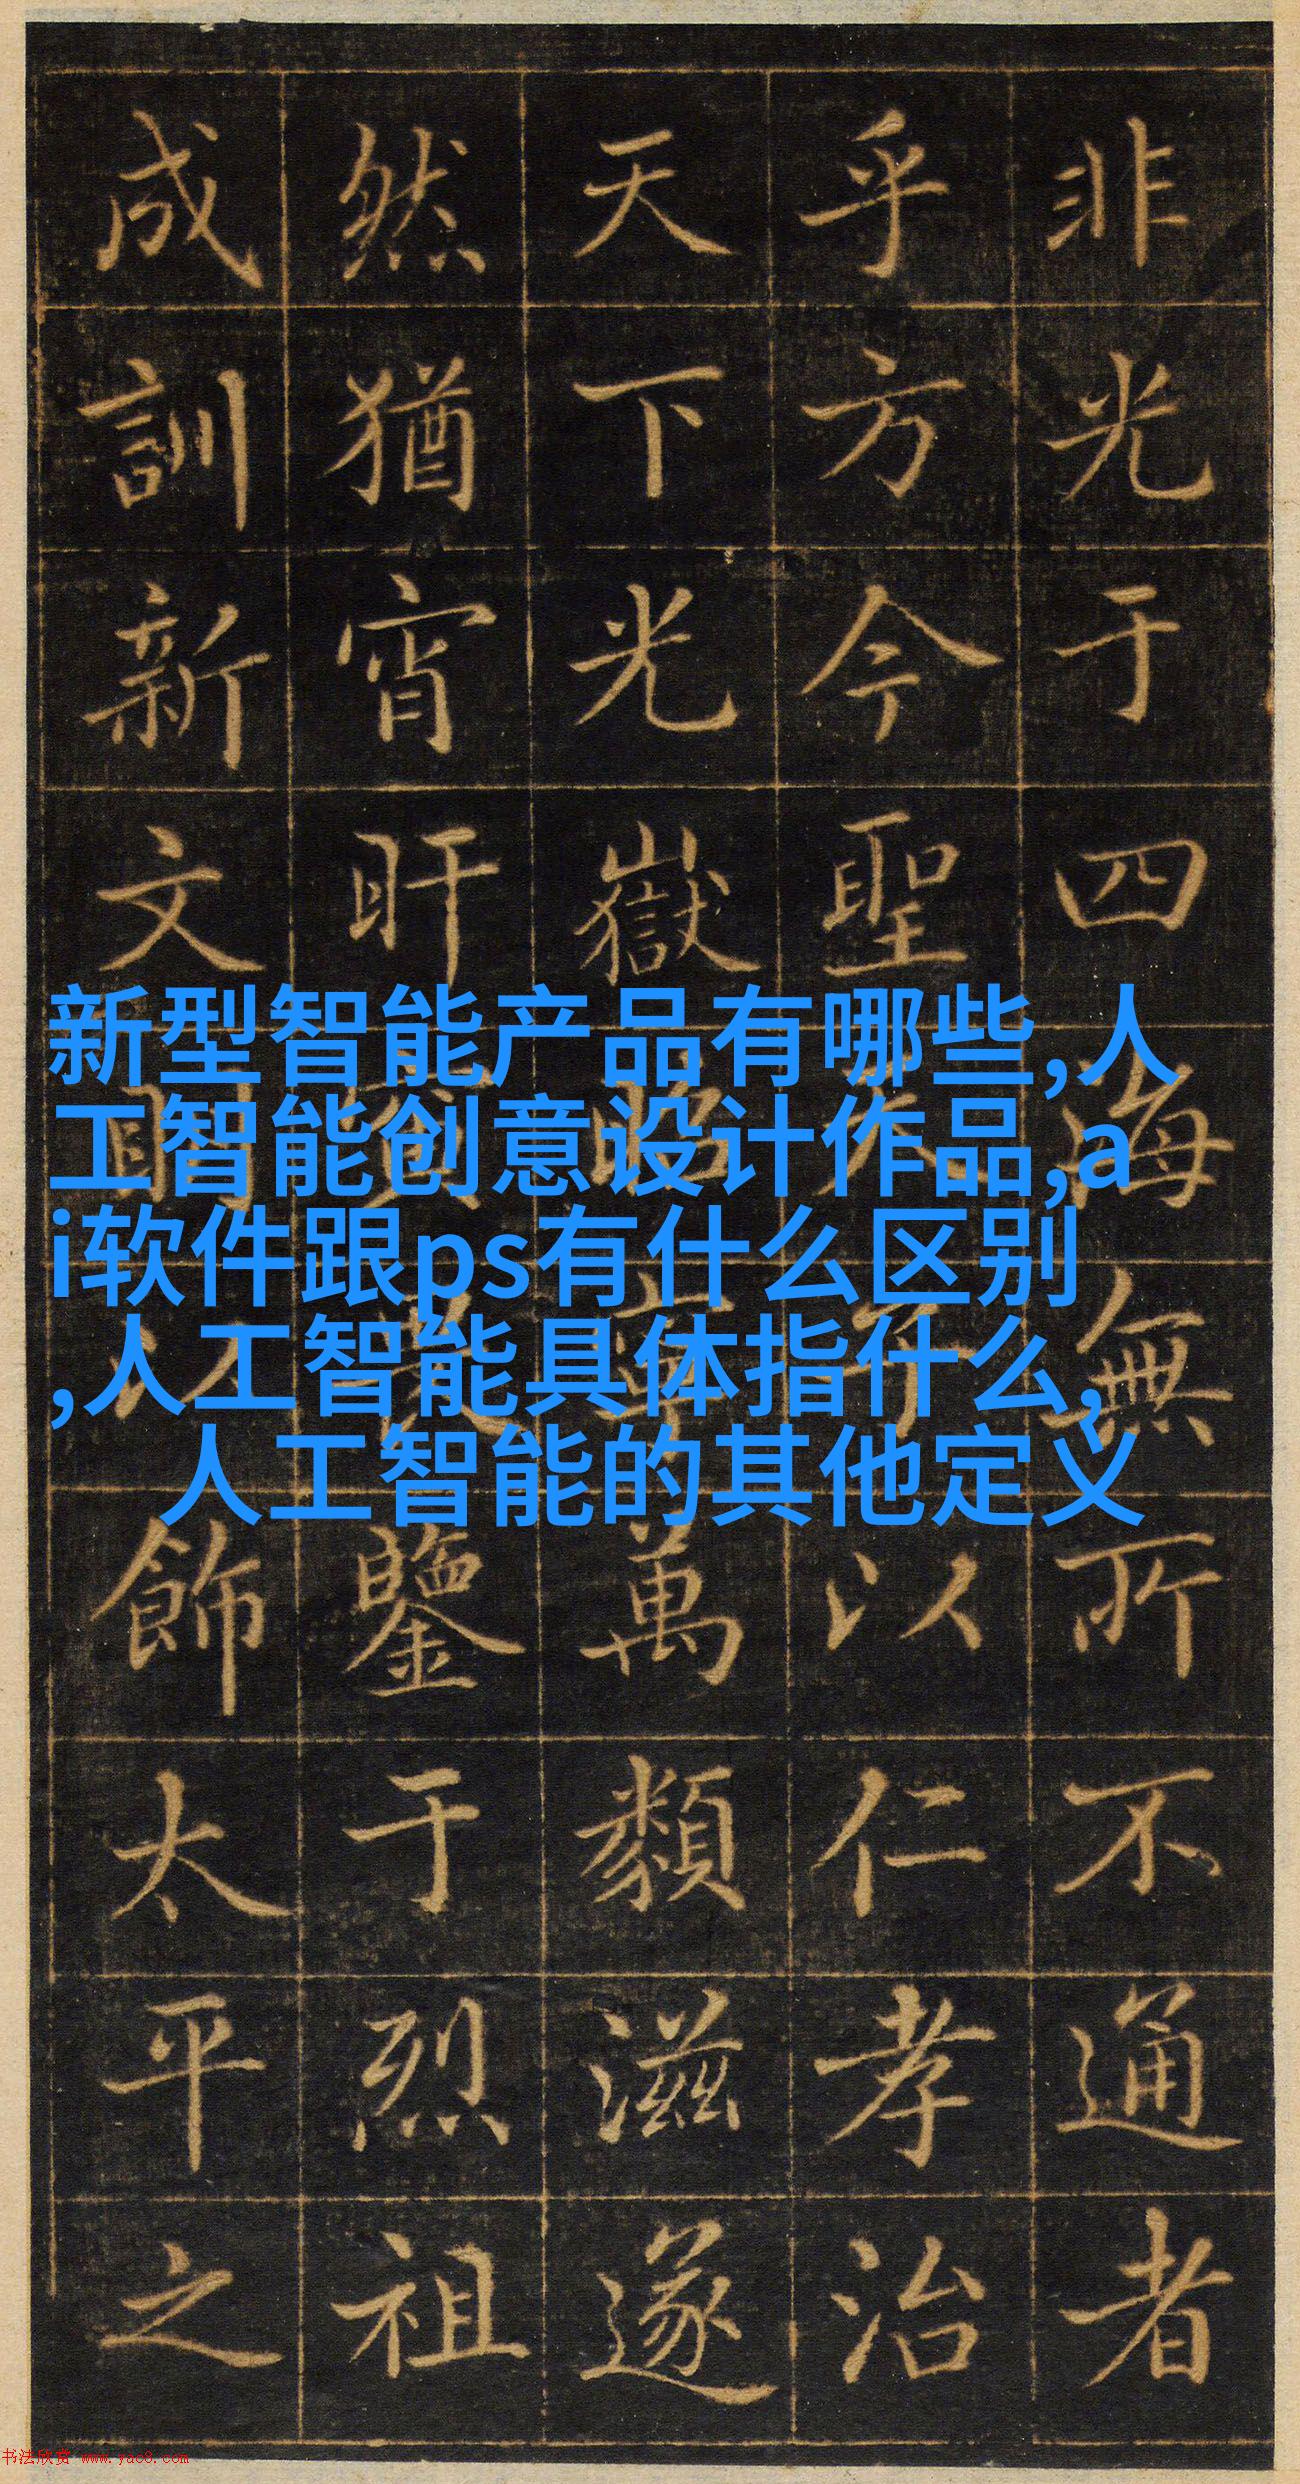 非光于四海無所不通者
乎方今聖天子以仁孝治
天下光嶽昭萬類滋遂
然猶宵旰鑒于烈祖
成訓新文以飾太平之
新型智能产品有哪些,人
工智能创意设计作品,a
i软件跟ps有什么区别
,人工智能具体指什么,
人工智能的其他定义
书法欣赏 www.yac8.com